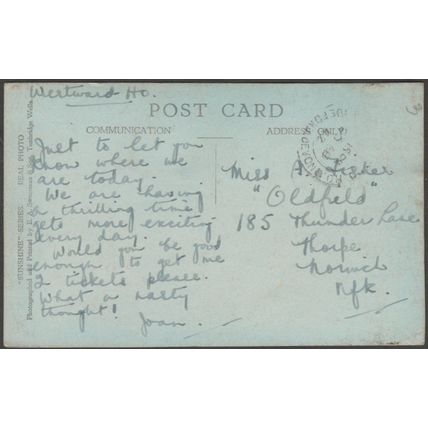 Westward Ho.
POST CARD
COMMUNICATION
ADDRESS ONLY
Just to let you
know where we
are today.
We are having
a thrilling time
gets more exciting
every day.
Would you be good
enough to get me
2 tickets please.
What a nasty
thought!
Joan.
Miss A.
"Oldfield"
185 Thunder Lane
Thorpe
Norwich
Nfk.
"SUNSHINE" SERIES. REAL PHOTO
Photographed and Printed by E. A. Sweetman & Son, Tunbridge Wells.
3